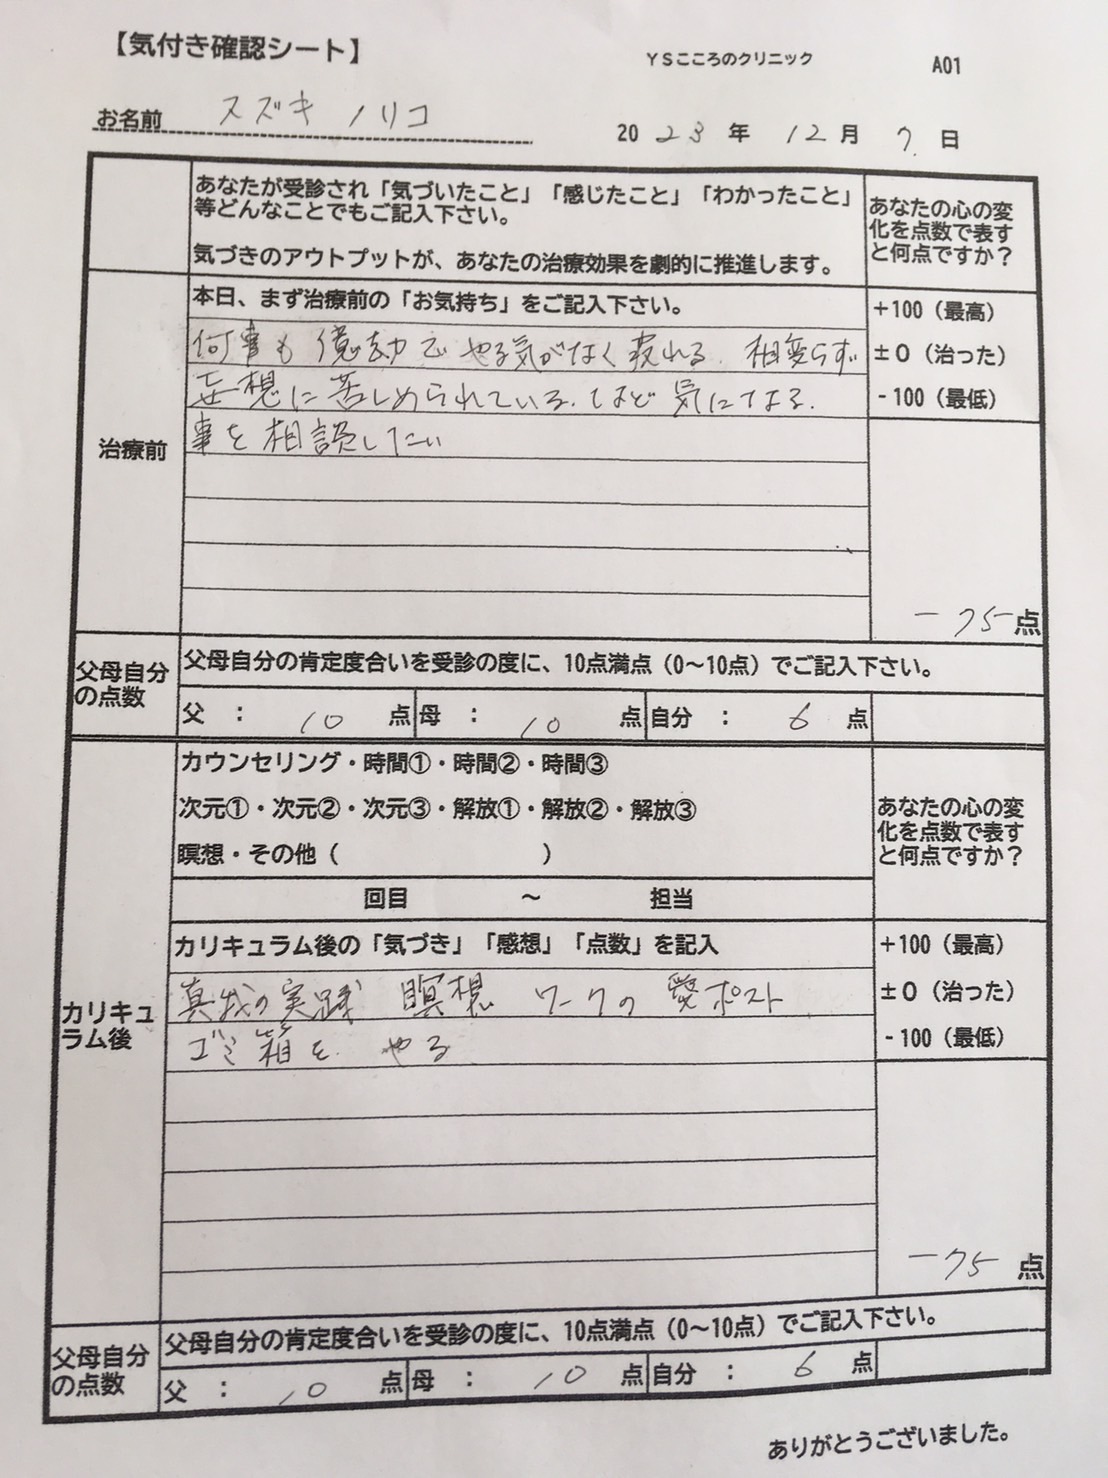 【気付き確認シート】
YSこころのクリニック
A01
お名前 スズキ ノリコ
2023年 12月 7.日
あなたが受診され「気づいたこと」「感じたこと」「わかったこと」
等どんなことでもご記入下さい。
気づきのアウトプットが、あなたの治療効果を劇的に推進します。
あなたの心の変
化を点数で表す
と何点ですか？
治療前
本日、まず治療前の「お気持ち」をご記入下さい。
何事も億劫でやる気がなく疲れる. 相変らず
妄想に苦しめられている. など気になる.
事を相談したい
+100（最高）
±0（治った）
-100（最低）
-75点
父母自分
の点数
父母自分の肯定度合いを受診の度に、10点満点（0～10点）でご記入下さい。
父 ： 10 点 母 ： 10 点 自分 ： 6 点
カウンセリング・時間①・時間②・時間③
次元①・次元②・次元③・解放①・解放②・解放③
瞑想・その他（ ）
回目 ～ 担当
あなたの心の変
化を点数で表す
と何点ですか？
カリキュ
ラム後
カリキュラム後の「気づき」「感想」「点数」を記入
真我の実践 瞑想 ワークの愛ポスト
ゴミ箱を. やる
+100（最高）
±0（治った）
-100（最低）
-75 点
父母自分
の点数
父母自分の肯定度合いを受診の度に、10点満点（0～10点）でご記入下さい。
父 ： 10 点 母 ： 10 点 自分 ： 6 点
ありがとうございました。